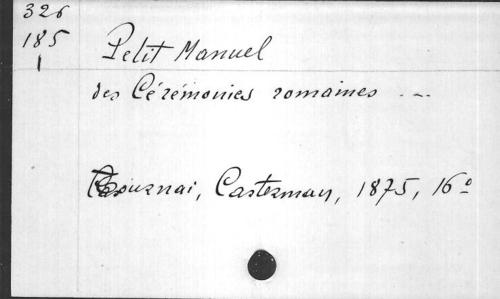 326
185
1
Petit Manuel
des Cérémonies romaines ...
Tournai, Casterman, 1875, 16º